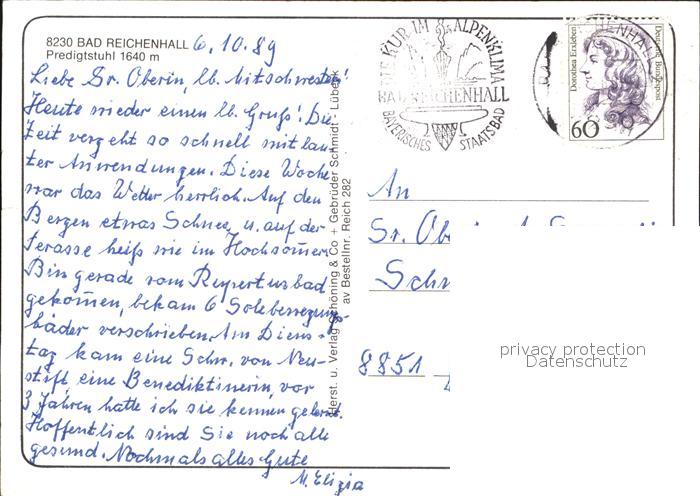 8230 BAD REICHENHALL 6.10.89
Predigtstuhl 1640 m
Liebe Sr. Oberin, lb. Mitschwester!
Heute wieder einen lb. Gruß! Die
Zeit vergeht so schnell mit lau-
ter Anwendungen. Diese Woche
war das Wetter herrlich. Auf den
Bergen etwas Schnee, u. auf der
Terasse heiß wie im Hochsommer.
Bin gerade vom Rupertusbad
gekommen, bekam 6 Solebewegungs-
bäder verschrieben. Am Diens-
tag kam eine Schw. von Neu-
stift, eine Benediktinerin, vor
3 Jahren hatte ich sie kennen gelernt.
Hoffentlich sind Sie noch alle
gesund. Nochmals alles Gute
M. Eligia
Herst. u. Verlag Schöning & Co + Gebrüder Schmidt · Lübeck
av Bestellnr. Reich 282
DIE KUR IM ALPENKLIMA
BAD REICHENHALL
BAYERISCHES STAATSBAD
Dorothea Erxleben
Deutsche Bundespost
60
An
Sr.
8851
privacy protection
Datenschutz